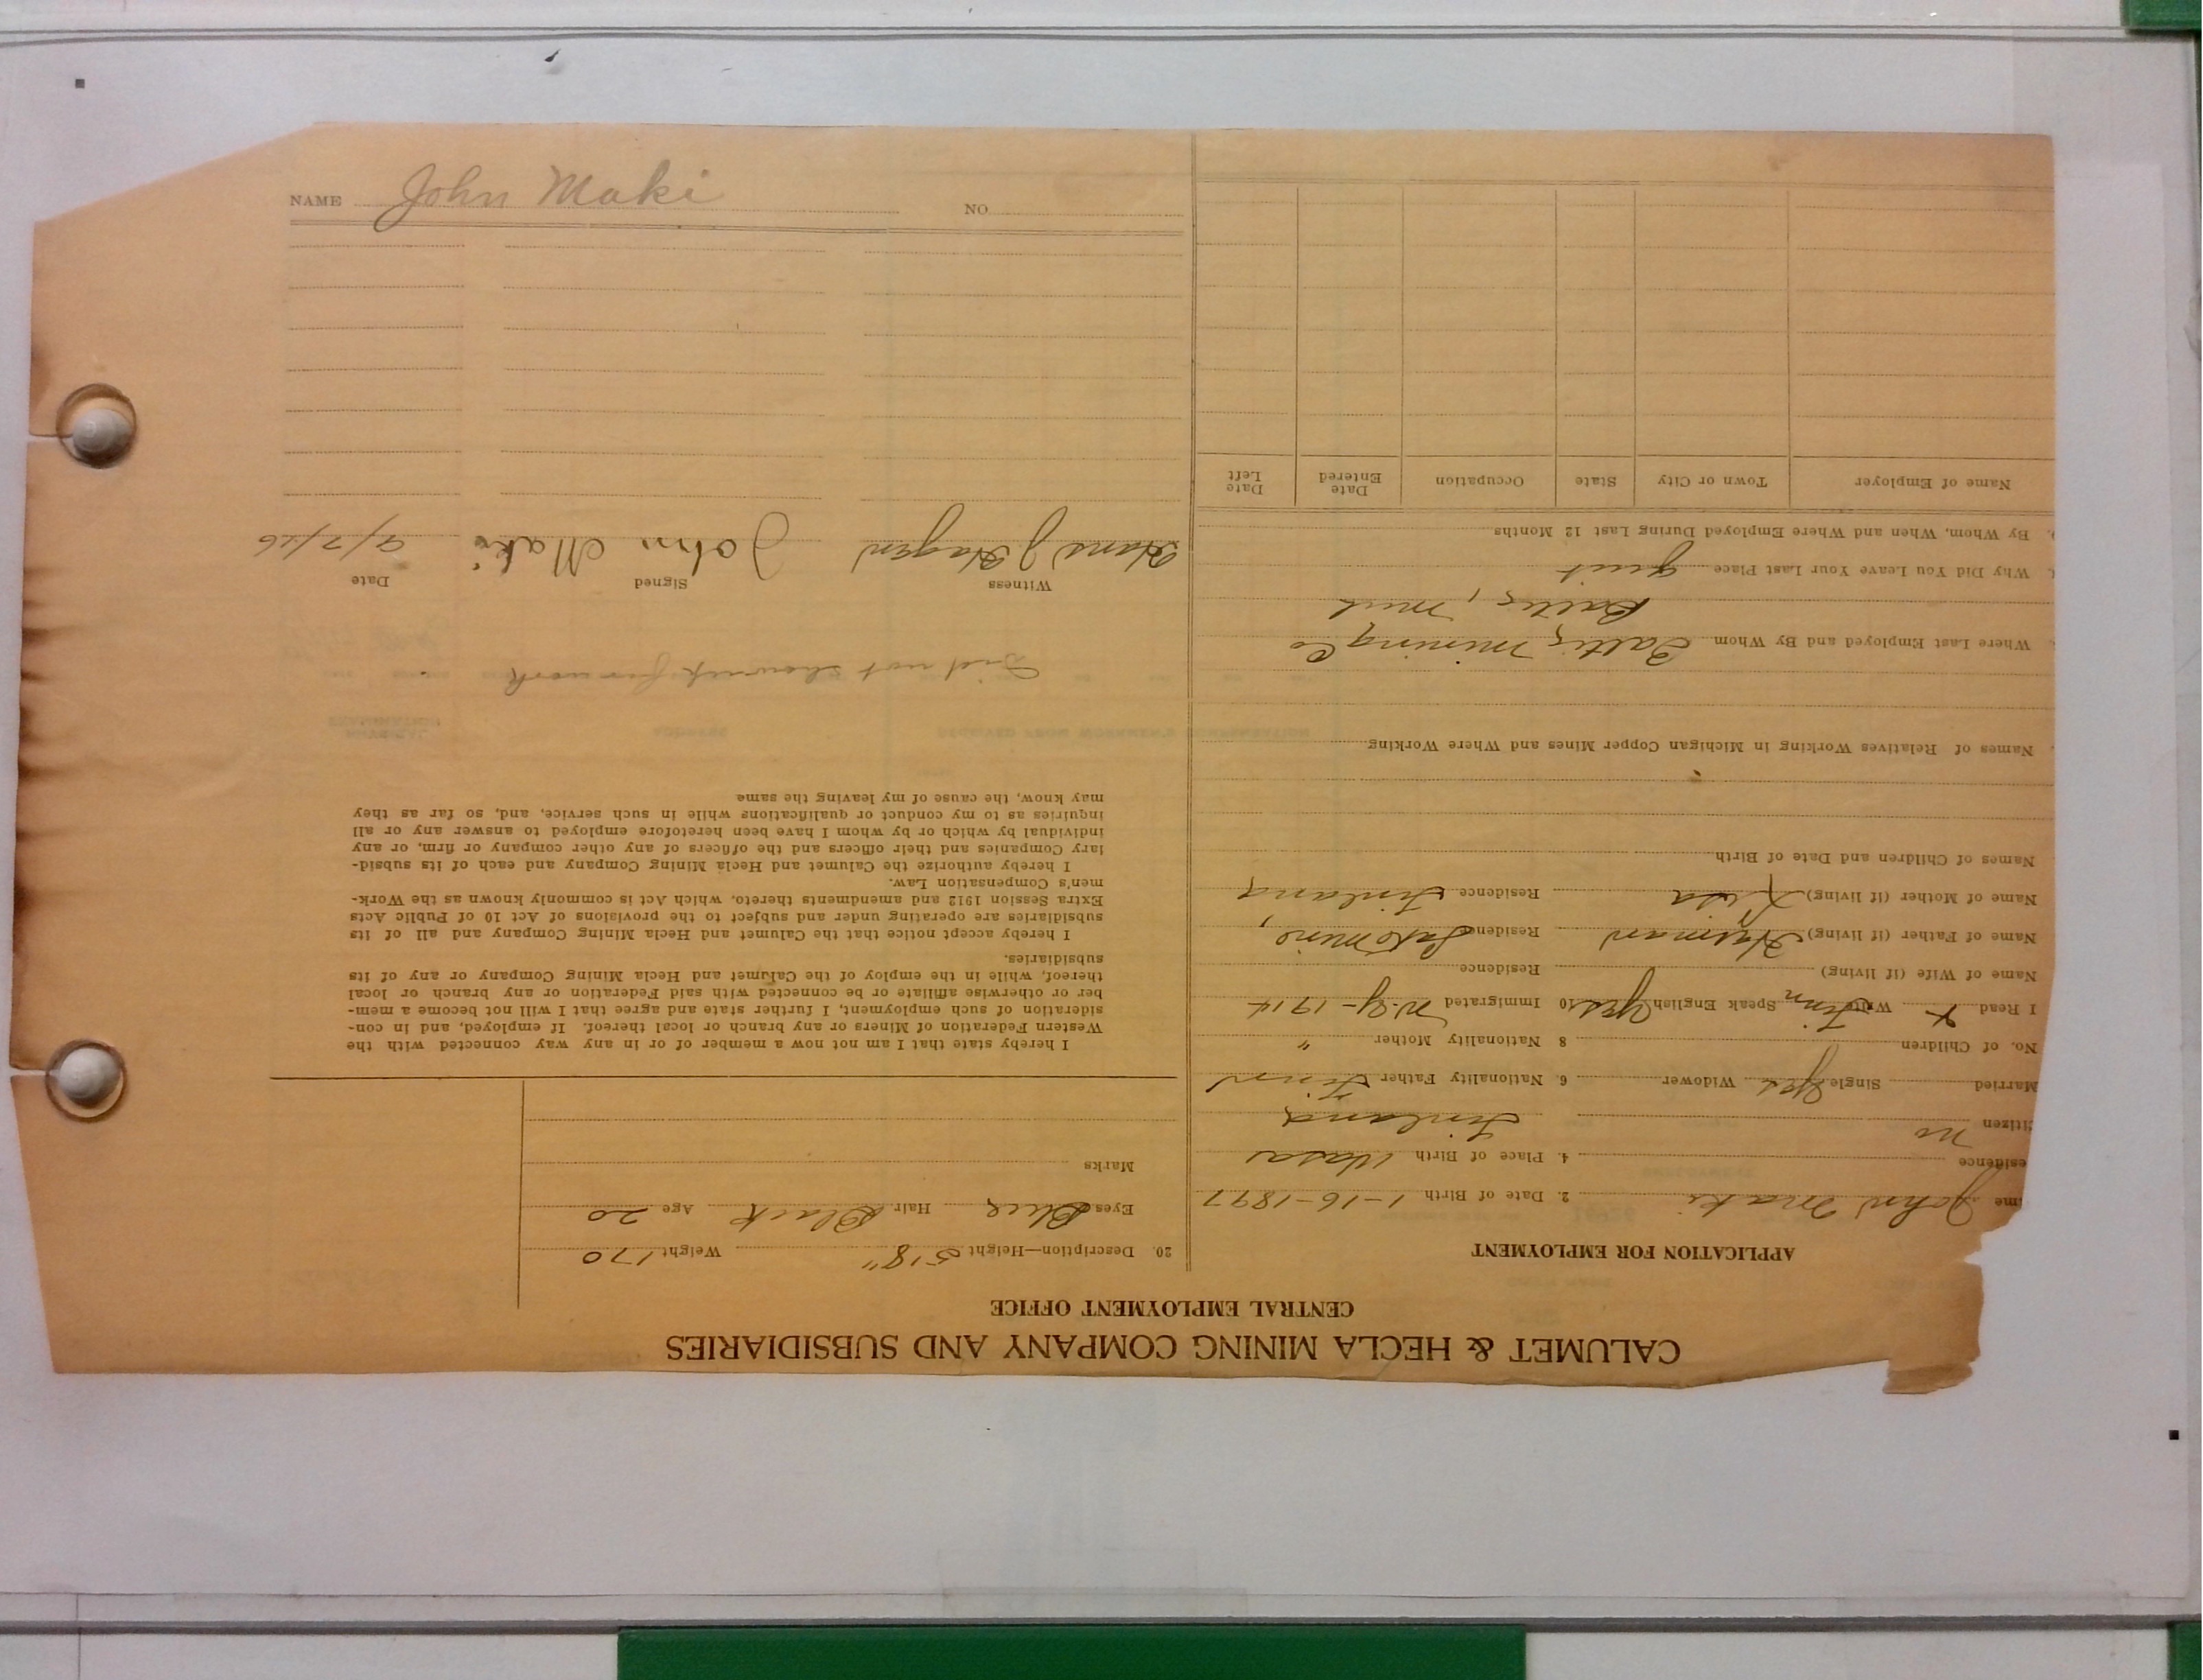 CALUMET & HECLA MINING COMPANY AND SUBSIDIARIES
CENTRAL EMPLOYMENT OFFICE
APPLICATION FOR EMPLOYMENT
me John Maki 2. Date of Birth 1-16-1897
esidence 4. Place of Birth Wasa
itizen no Finland
Married Single Yes Widower 6. Nationality Father Finn
No. of Children 8 Nationality Mother "
I Read x Write Finn Speak English Yes 10 Immigrated N.Y- 1914
Name of Wife (if living) Residence
Name of Father (if living) Herman Residence
Name of Mother (if living) Lisa Residence Finland
Names of Children and Date of Birth
Names of Relatives Working in Michigan Copper Mines and Where Working
Where Last Employed and By Whom Baltic Mining Co
Baltic, Mich
Why Did You Leave Your Last Place quit
By Whom, When and Where Employed During Last 12 Months
Name of Employer Town or City State Occupation Date Entered Date Left
20. Description—Height 5'8" Weight 170
Eyes Blue Hair Black Age 20
Marks
I hereby state that I am not now a member of or in any way connected with the
Western Federation of Miners or any branch or local thereof. If employed, and in con-
sideration of such employment, I further state and agree that I will not become a mem-
ber or otherwise affiliate or be connected with said Federation or any branch or local
thereof, while in the employ of the Calumet and Hecla Mining Company or any of its
subsidiaries.
I hereby accept notice that the Calumet and Hecla Mining Company and all of its
subsidiaries are operating under and subject to the provisions of Act 10 of Public Acts
Extra Session 1912 and amendments thereto, which Act is commonly known as the Work-
men's Compensation Law.
I hereby authorize the Calumet and Hecla Mining Company and each of its subsid-
iary Companies and their officers and the officers of any other company or firm, or any
individual by which or by whom I have been heretofore employed to answer any or all
inquiries as to my conduct or qualifications while in such service, and, so far as they
may know, the cause of my leaving the same
Did not show up for work
Witness Signed Date
Hans J Hagen John Maki 9/7/16
NAME John Maki NO.